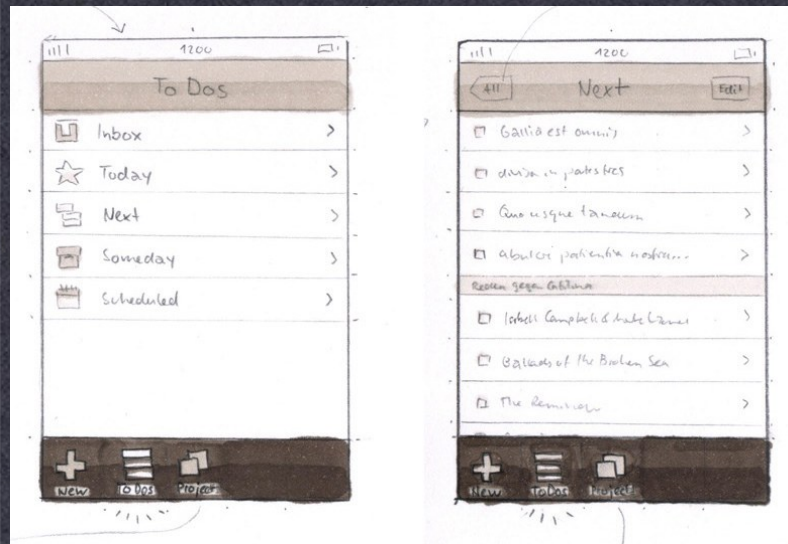 1200
To Dos
Inbox
Today
Next
Someday
Scheduled
New
To Dos
Project
1200
All
Next
Edit
Gallia est omnis
divisa in partes tres
Quo usque tandem
abutere patientia nostra...
Reden gegen Catilina
Isobell Campbell &
Ballads of the Broken Sea
The Reminder
New
To Dos
Project